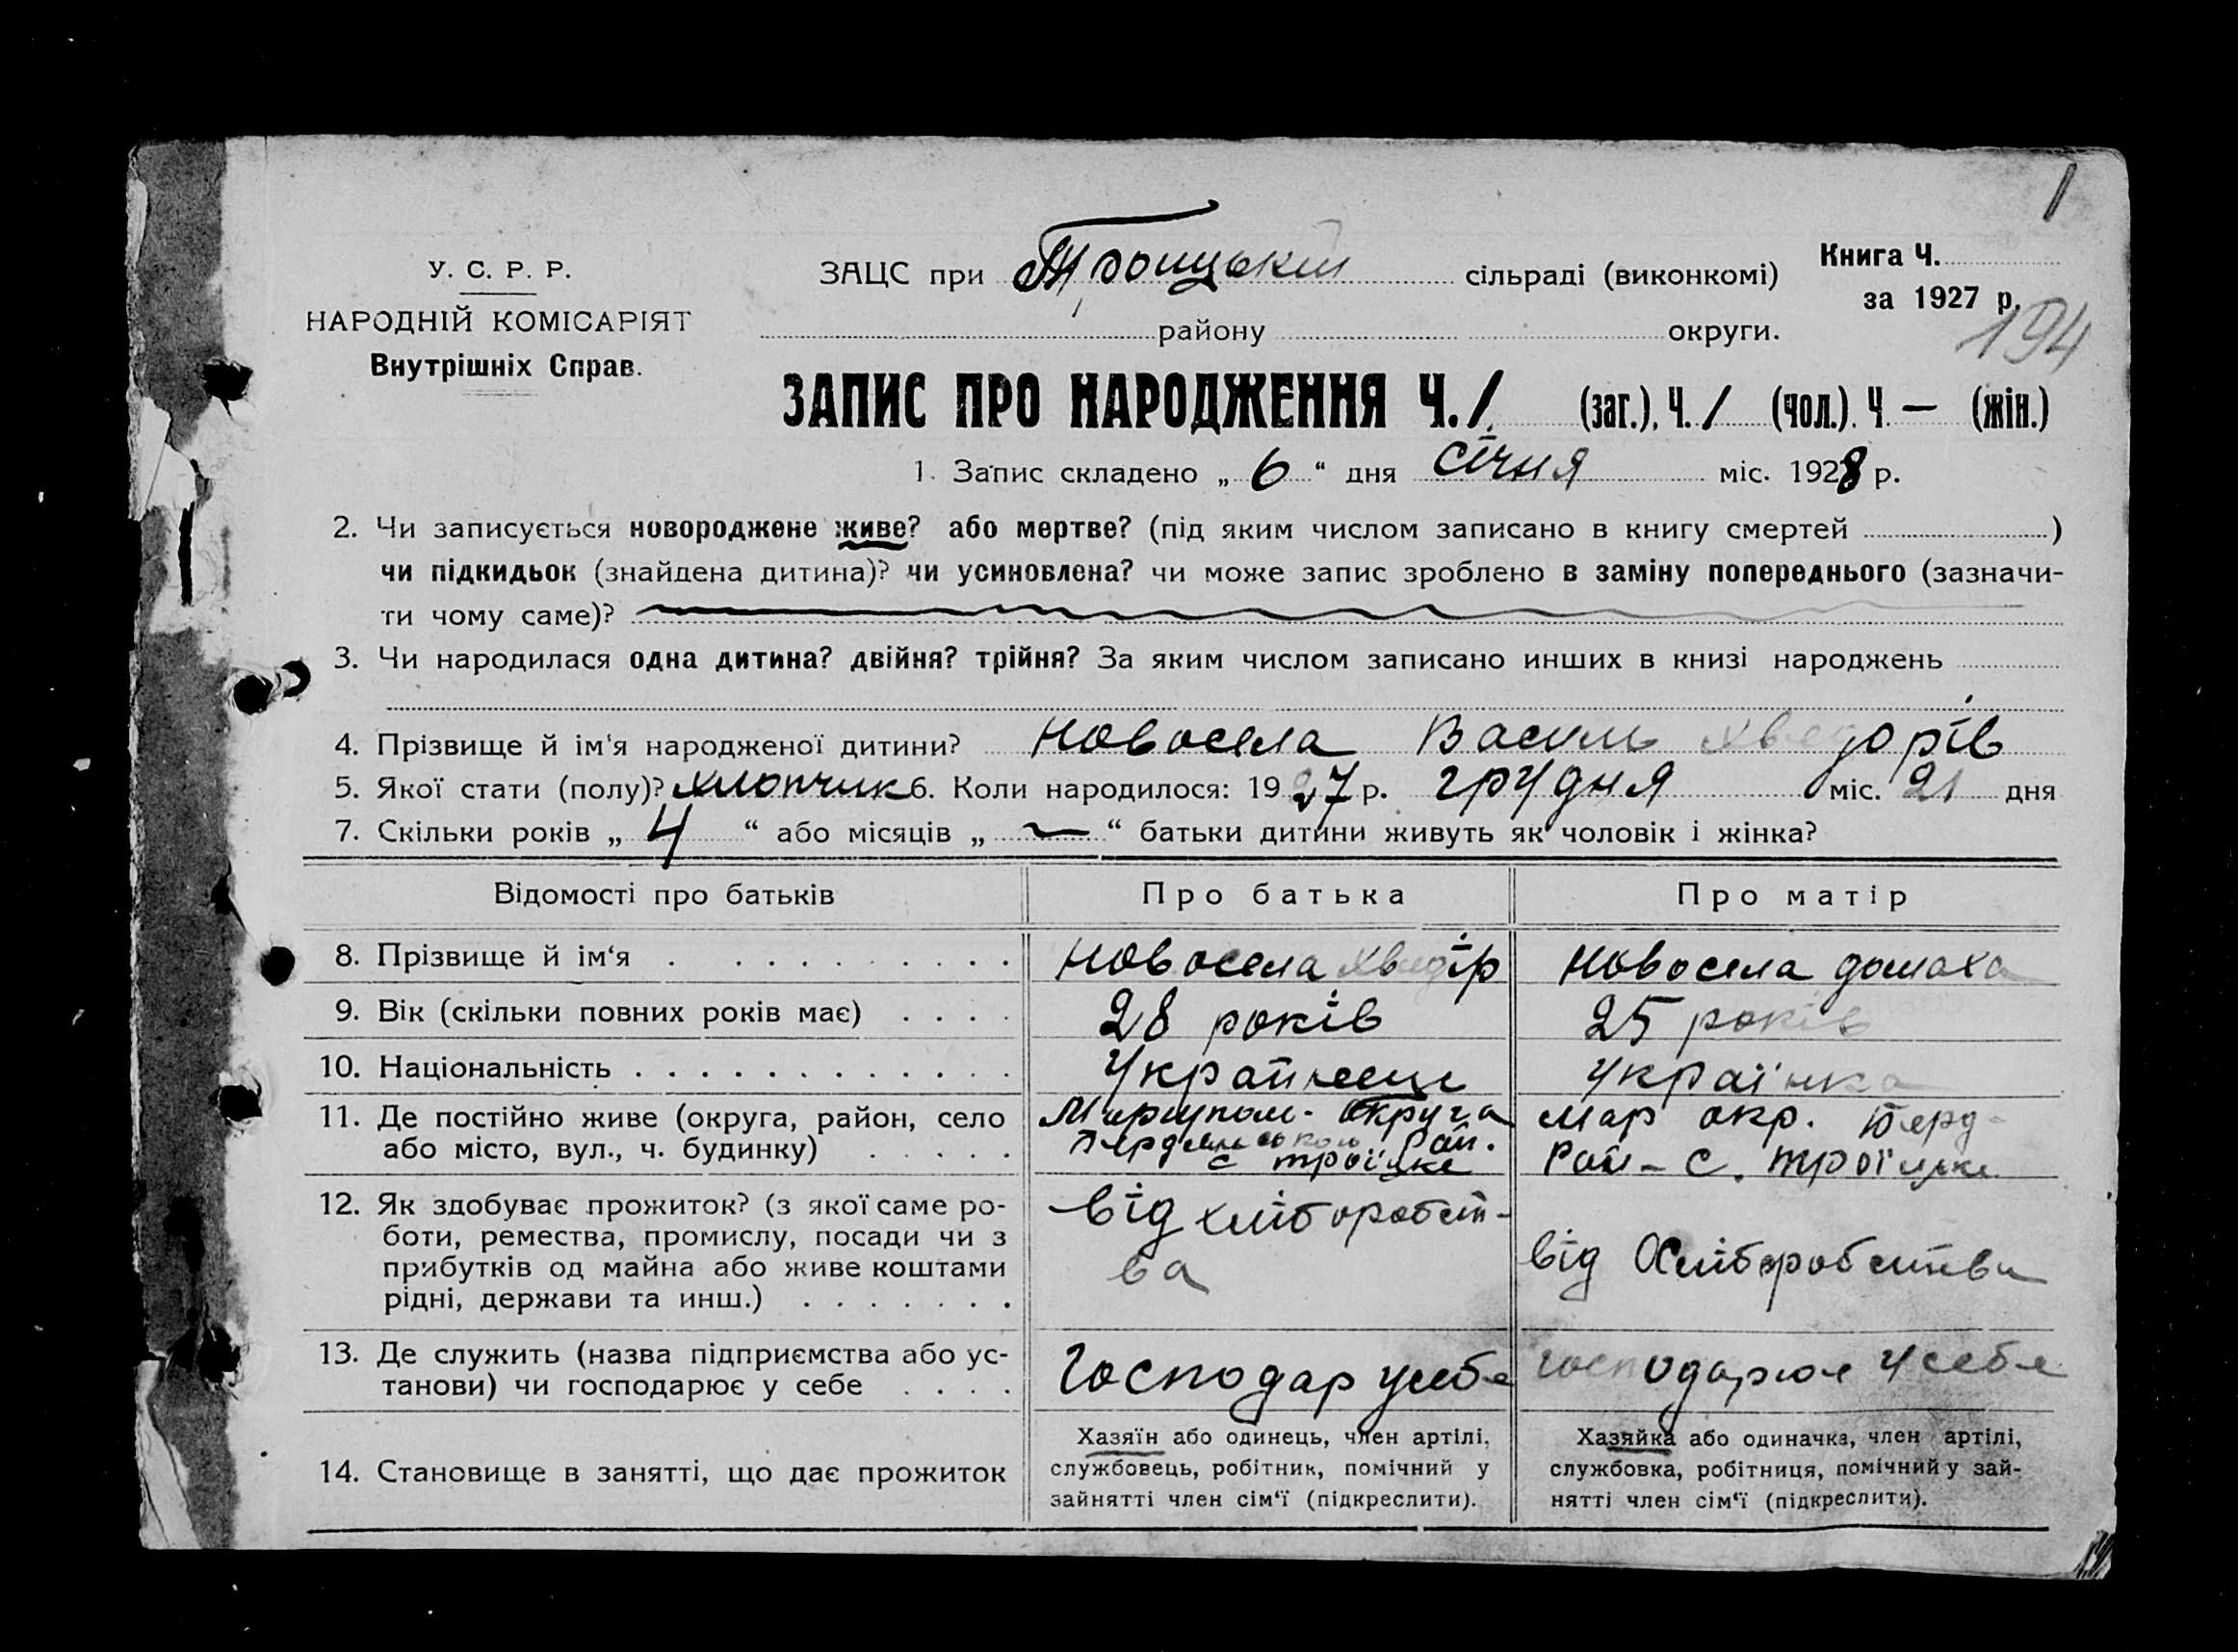 1
У. С. Р. Р.
НАРОДНІЙ КОМІСАРІЯТ
Внутрішніх Справ.
ЗАЦС при Троицькій сільраді (виконкомі)
району округи.
Книга Ч.
за 1927 р.
194
ЗАПИС ПРО НАРОДЖЕННЯ Ч. 1 (заг.), Ч. 1 (чол.). Ч. — (жін.)
1. Запис складено „ 6 “ дня січня міс. 1928 р.
2. Чи записується новороджене живе? або мертве? (під яким числом записано в книгу смертей )
чи підкидьок (знайдена дитина)? чи усиновлена? чи може запис зроблено в заміну попереднього (зазначи-
ти чому саме)?
3. Чи народилася одна дитина? двійня? трійня? За яким числом записано инших в книзі народжень
4. Прізвище й ім'я народженої дитини? Новосела Василь Хведорів
5. Якої стати (полу)? хлопчик 6. Коли народилося: 1927 р. грудня міс. 21 дня
7. Скільки років „ 4 “ або місяців „ — “ батьки дитини живуть як чоловік і жінка?
Відомості про батьків Про батька Про матір
8. Прізвище й ім‘я . . . . . . . . . . Новосела Хведір Новосела домаха
9. Вік (скільки повних років має) . . . . 28 років 25 років
10. Національність . . . . . . . . . . . . . Українець Українка
11. Де постійно живе (округа, район, село
або місто, вул., ч. будинку) . . . . .
Маріупол. округа
рай.
с троїцке
мар окр. Берд-
Рай – с. троїцьке
12. Як здобуває прожиток? (з якої саме ро-
боти, ремества, промислу, посади чи з
прибутків од майна або живе коштами
рідні, держави та инш.) . . . . . . .
від хліборобст-
ва
від Хліборобства
13. Де служить (назва підприємства або ус-
танови) чи господарює у себе . . . .
Господар у себе
господарює у себе
14. Становище в занятті, що дає прожиток
Хазяїн або одинець, член артілі,
службовець, робітник, помічний у
зайнятті член сім‘ї (підкреслити).
Хазяйка або одиначка, член артілі,
службовка, робітниця, помічний у зай-
нятті член сім‘ї (підкреслити).